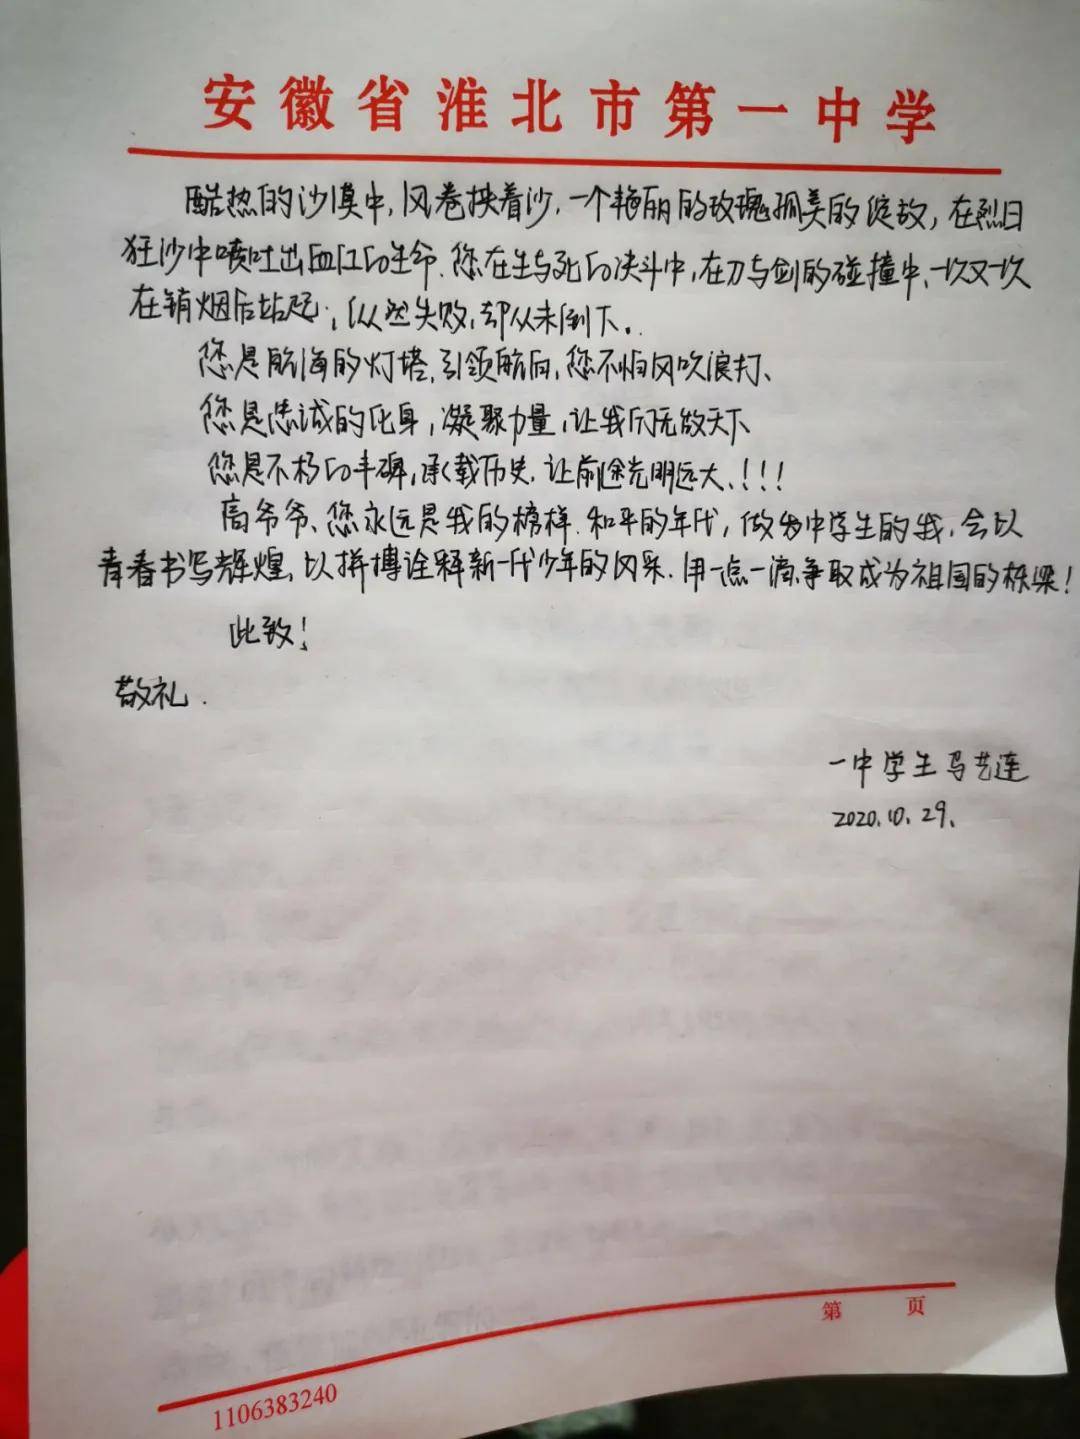 安徽省淮北市第一中学
酷热的沙漠中，风卷挟着沙，一个艳丽的玫瑰孤美的绽放，在烈日
狂沙中喷吐出血红的生命。您在生与死的决斗中，在刀与剑的碰撞中、一次又一次
在销烟后站起；纵然失败，却从未倒下。
您是航海的灯塔，引领航向，您不怕风吹浪打、
您是忠诚的化身，凝聚力量，让我们无敌天下
您是不朽的丰碑，承载历史，让前途光明远大、!!!
高爷爷、您永远是我的榜样。和平的年代，做为中学生的我，会以
青春书写辉煌，以拼搏诠释新一代少年的风采。用一点一滴争取成为祖国的栋梁！
此致！
敬礼.
一中学生马艺连
2020.10.29.
第 页
1106383240